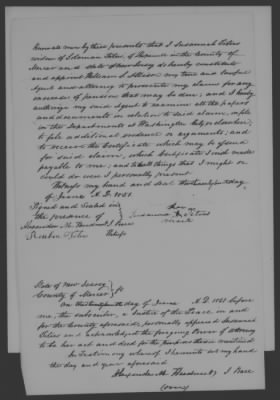 Know all men by these presents that I Susannah Titus
widow of Solomon Titus of Hopewell in the County of
Mercer and State of New Jersey do hereby constitute
and appoint William S. my true and lawful
Agent and attorney to prosecute my claim for any
amount of pension that may be due; and I hereby
authorize my said Agent to examine all the papers
and documents in relation to said claim, on file
in the Departments at Washington City or elsewhere;
to file additional evidence or arguments; and
to receive the Certificate which may be issued
for said claim; which Certificate I wish made
payable to me; and do all things that I might or
could do were I personally present
Witness my hand and seal this day
of June A.D. 1851.
Signed and Sealed in
the presence of
her
Susannah X Titus
mark
Alexander M. J. Peace
Titus
Witness
State of New Jersey
County of Mercer ss
On this day of June A.D. 1851 before
me, the subscriber, a Justice of the Peace in and
for the County aforesaid, personally appeared Susannah
Titus and acknowledged the foregoing Power of Attorney
to be her act and deed for the purposes therein mentioned
In Testimony whereof I hereunto set my hand
the day and year aforesaid
Alexander M. J. Peace
(over)